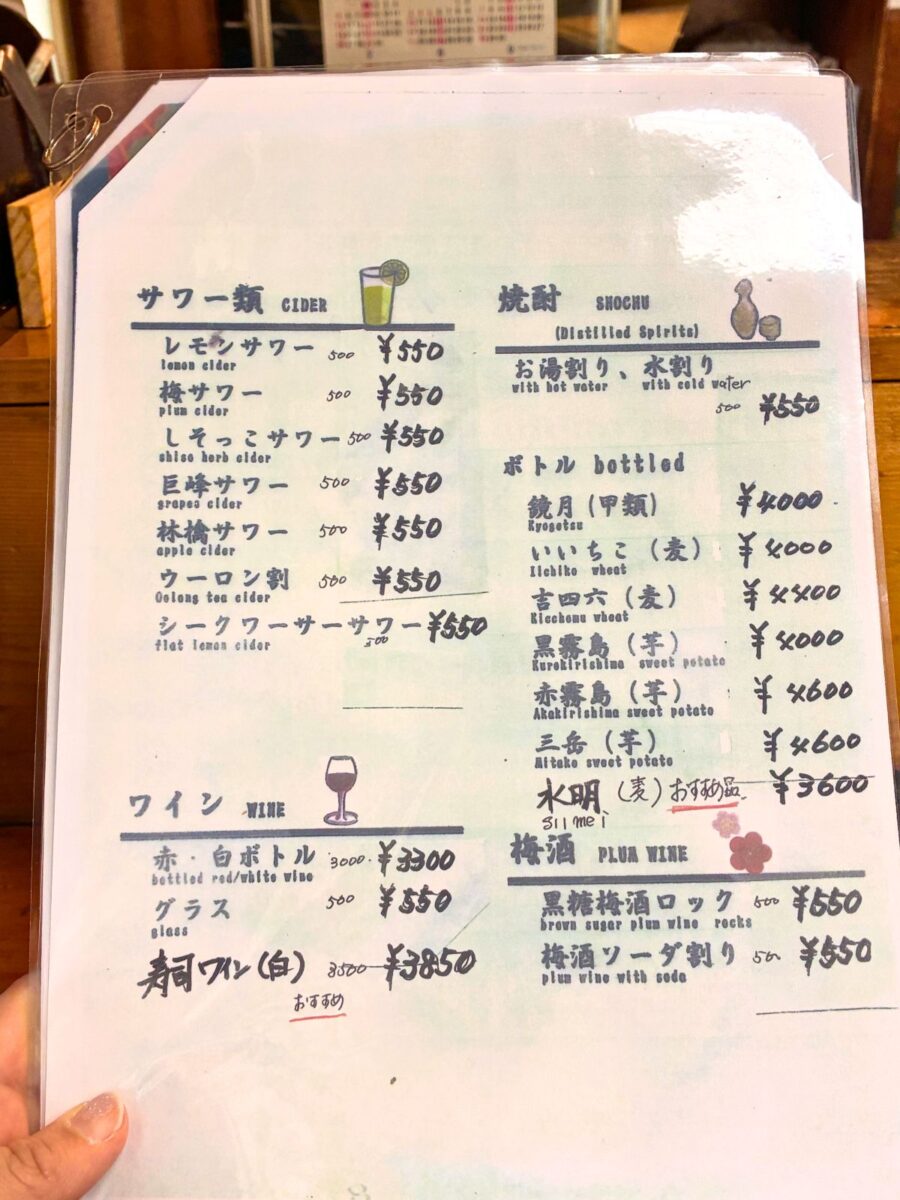 サワー類 CIDER
レモンサワー 500 ¥550
lemon cider
梅サワー 500 ¥550
plum cider
しそっこサワー 500 ¥550
shiso herb cider
巨峰サワー 500 ¥550
grapes cider
林檎サワー 500 ¥550
apple cider
ウーロン割 500 ¥550
Oolong tea cider
シークワーサーサワー 500 ¥550
flat lemon cider
ワイン WINE
赤・白ボトル 3000 ¥3300
bottled red/white wine
グラス 500 ¥550
glass
寿司ワイン(白) 3500 ¥3850
おすすめ
焼酎 SHOCHU
(Distilled Spirits)
お湯割り、水割り
with hot water with cold water
500 ¥550
ボトル bottled
鏡月(甲類) ¥4000
Kyogetsu
いいちこ(麦) ¥4000
Iichiko wheat
吉四六(麦) ¥4400
Kicchomu wheat
黒霧島(芋) ¥4000
Kurokirishima sweet potato
赤霧島(芋) ¥4600
Akakirishima sweet potato
三岳(芋) ¥4600
Mitake sweet potato
水明(麦) おすすめ品 ¥3600
Suimei
梅酒 PLUM WINE
黒糖梅酒ロック 500 ¥550
brown sugar plum wine rocks
梅酒ソーダ割り 500 ¥550
plum wine with soda